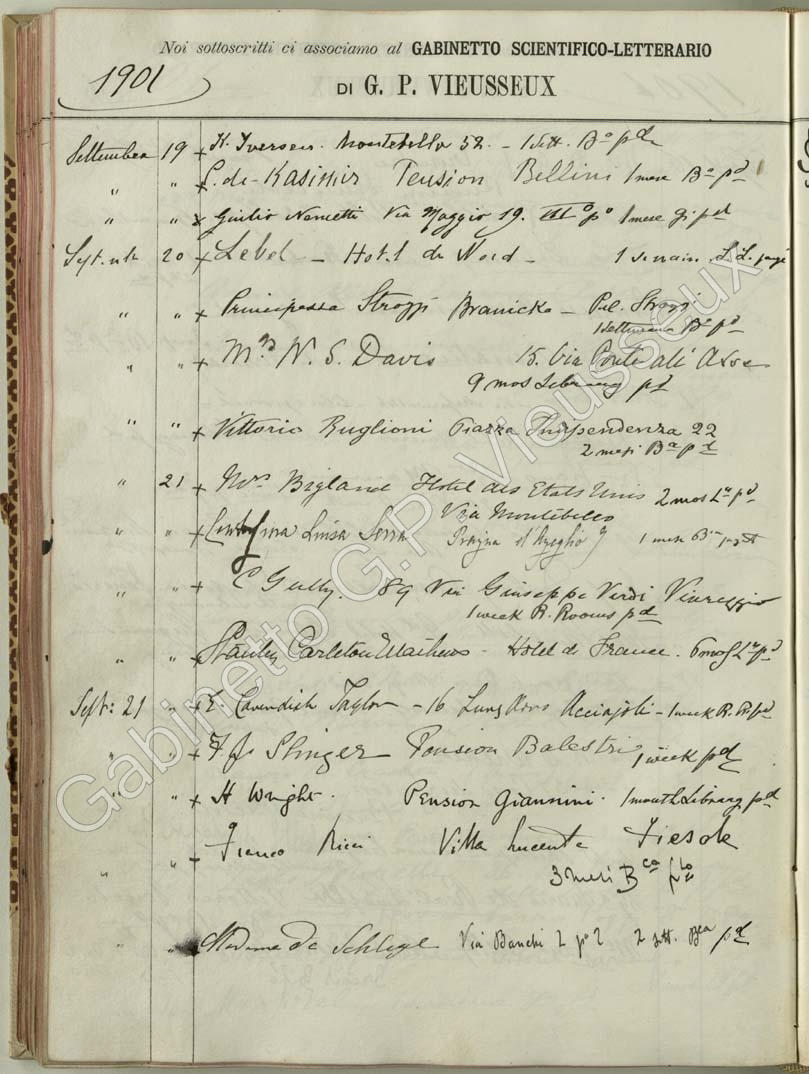 Noi sottoscritti ci associamo al GABINETTO SCIENTIFICO-LETTERARIO
1901
DI G. P. VIEUSSEUX
Settembre 19 + K. Iversen. Montebello 52. - 1 sett. Bª pd
" " + de Kasimir Pension Bellini 1 mese Bª pd
" " x Giulio Via Maggio 19. III° p° 1 mese pd
20 + Lebel - Hotel du Nord - 1 L.
" " + Principessa Strozzi Branicka - Pal. Strozzi
1 settimana Bª pd
" " + Mrs N. S. Davis 15. Via Ponte all' Asse
9 mos Library pd
" " + Vittorio Ruglioni Piazza Indipendenza 22
2 mesi Bª pd
" 21 + Mrs Bigland Hotel des Etats Unis 2 mos Lʸ pd
Via Montebello
" " + Luisa Serra d'Azeglio 1 mese
" " + C Gully. 89 Via Giuseppe Verdi Viareggio
1 week R. Rooms pd
" " + Stanley Carleton - Hotel de France. 6 mos Lʸ pd
Sept: 21 " + E. Cavendish Taylor - 16 Lung'Arno Acciajoli - 1 week R. R. pd
" " + Slinger Pension Balestri 1 week pd
" " + H Wright. Pension Giannini. 1 month Library pd
" " + Franco Ricci Villa Fiesole
3 mesi Bca pto
" " Madame de Schlegel Via Banchi 2 p° 2 2 sett. Bca pd
Gabinetto G.P. Vieusseux